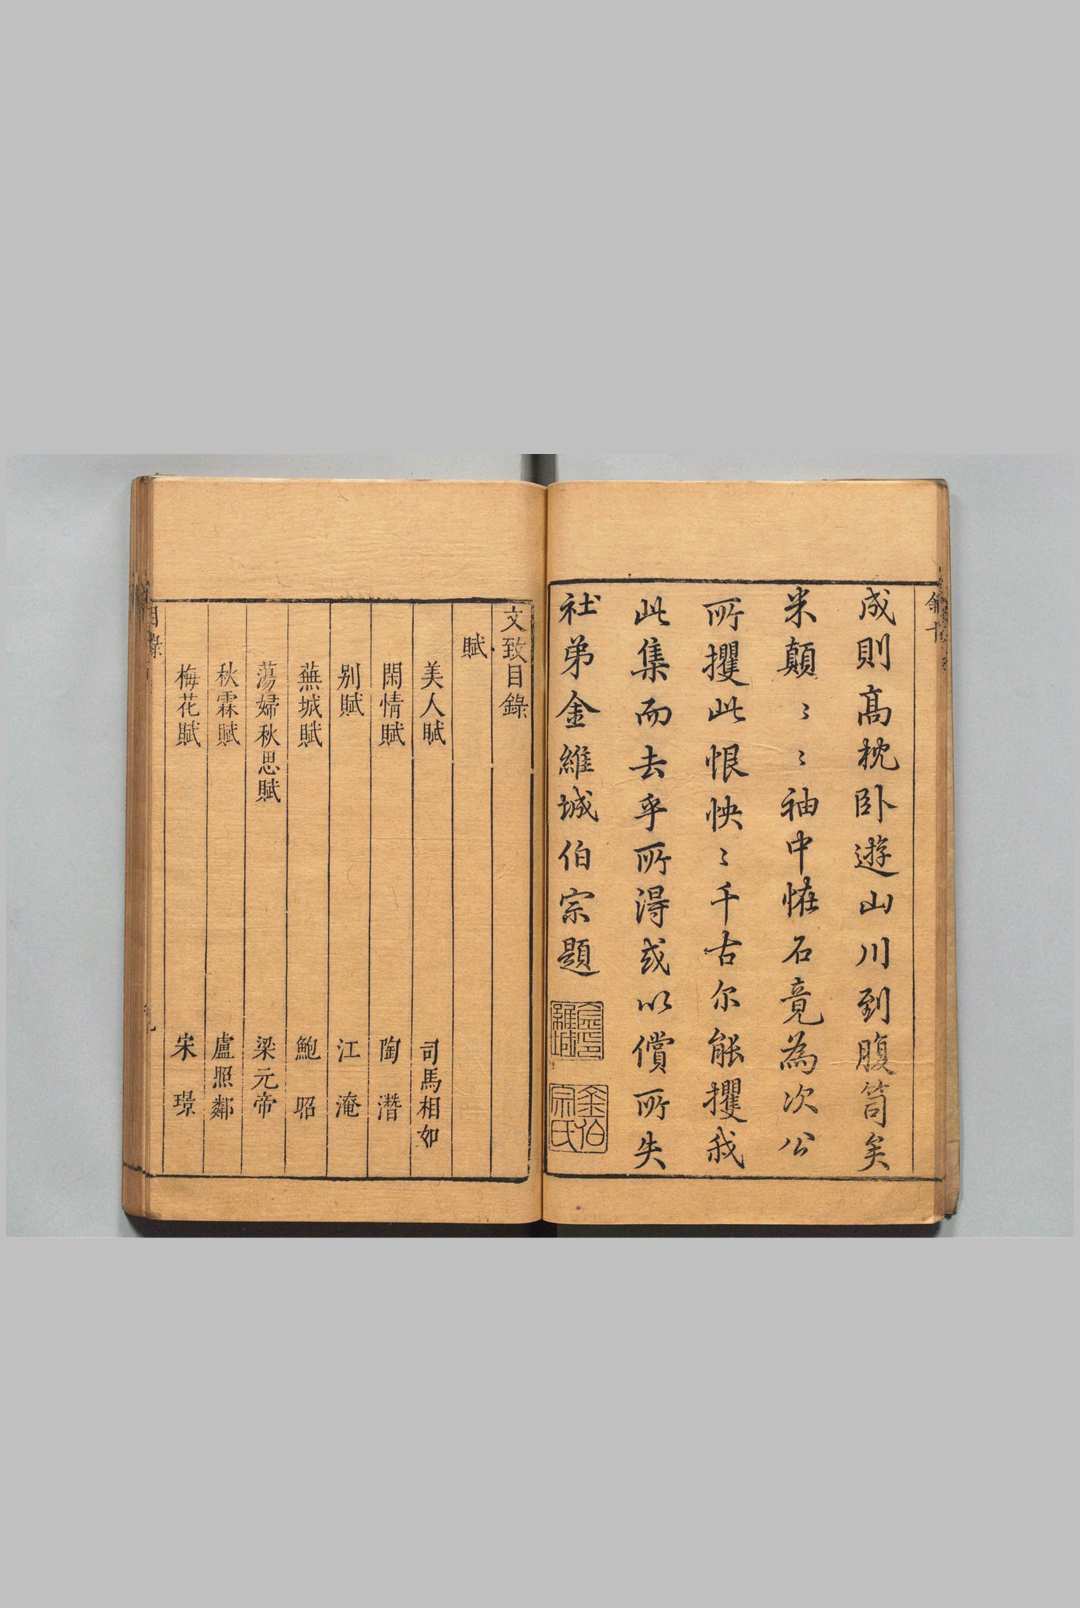 成則高枕卧遊山川到腹笥矣
米顛〻〻袖中恠石竟為次公
所攫此恨怏〻千古尔能攫我
此集而去乎所得或以償所失
社弟金維城伯宗題
金維城印
金伯宗氏
文致目錄
賦
美人賦 司馬相如
閑情賦 陶潛
别賦 江淹
蕪城賦 鮑照
蕩婦秋思賦 梁元帝
秋霖賦 盧照鄰
梅花賦 宋璟
目錄